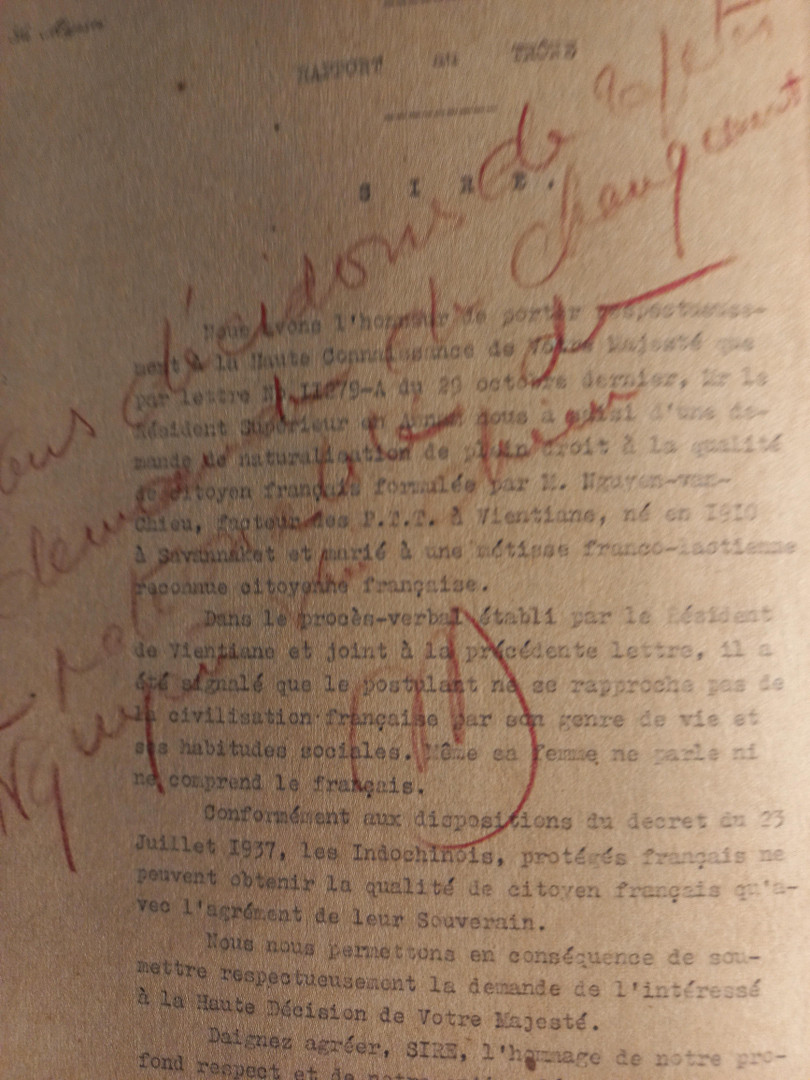 RAPPORT au TRÔNE
SIRE,
Nous avons l'honneur de porter respectueuse-
ment à la Haute Connaissance de Votre Majesté que
par lettre No.II279-A du 29 octobre dernier, Mr le
Résident Supérieur en Annam nous a saisi d'une de-
mande de naturalisation de plein droit à la qualité
de citoyen français formulée par M. Nguyen-van-
Chieu, facteur des P.T.T. à Vientiane, né en I9I0
à Savannaket et marié à une métisse franco-laotienne
reconnue citoyenne française.
Dans le procès-verbal établi par le Résident
de Vientiane et joint à la précédente lettre, il a
été signalé que le postulant ne se rapproche pas de
la civilisation française par son genre de vie et
ses habitudes sociales. Même sa femme ne parle ni
ne comprend le français.
Conformément aux dispositions du decret du 23
Juillet I937, les Indochinois, protégés français ne
peuvent obtenir la qualité de citoyen français qu'a-
vec l'agrément de leur Souverain.
Nous nous permettons en conséquence de sou-
mettre respectueusement la demande de l'intéressé
à la Haute Décision de Votre Majesté.
Daignez agréer, SIRE, l'hommage de notre pro-
fond respect et de notre
décidons de rejeter
demande de changement
de